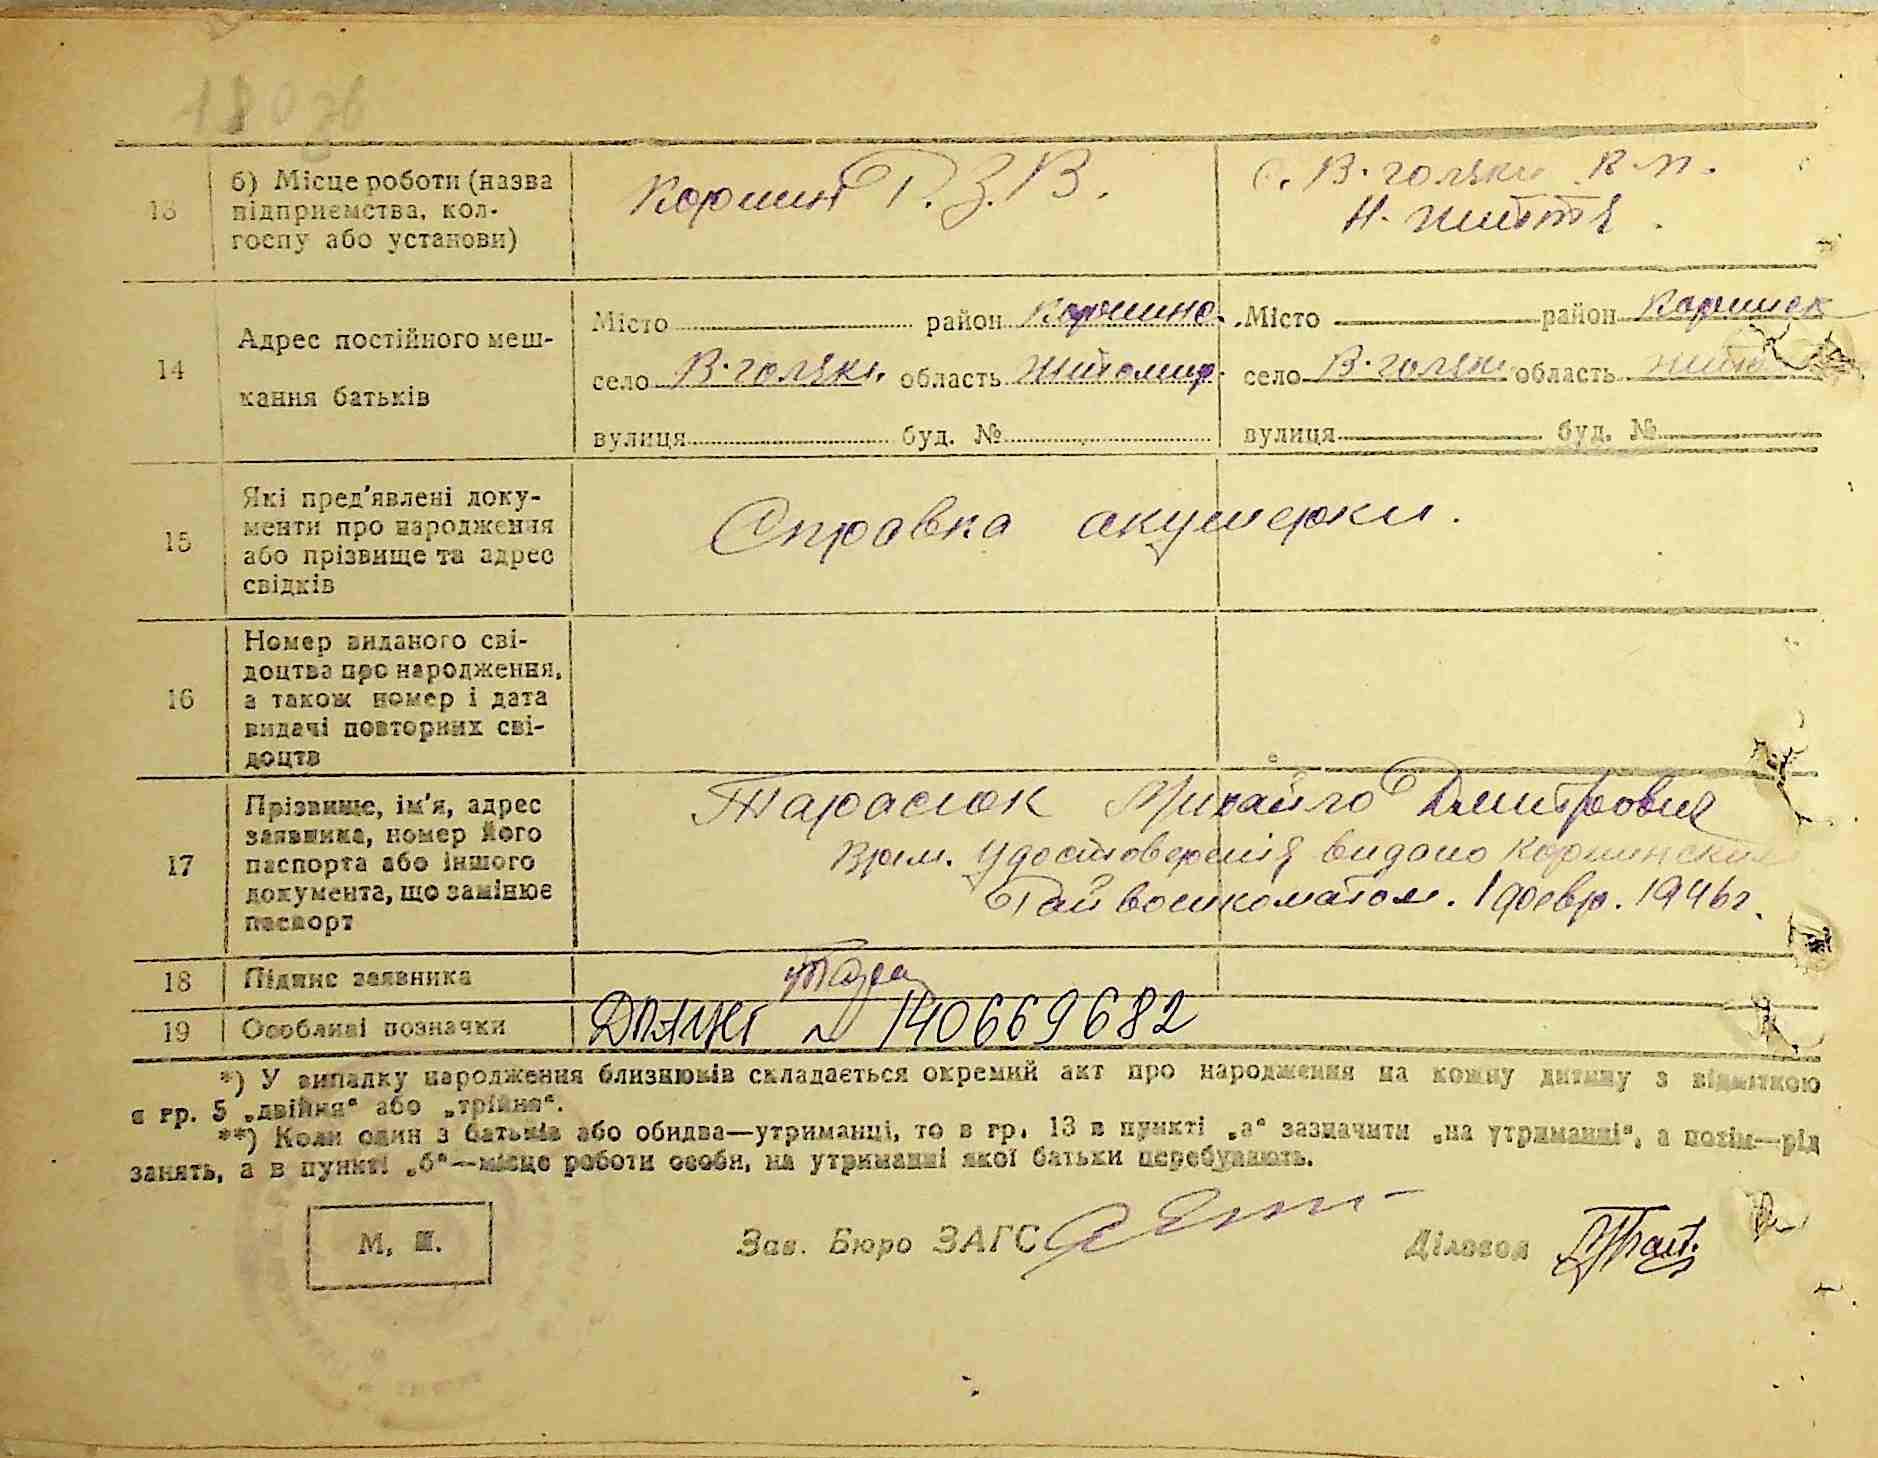 13 б) Місце роботи (назва підприємства, кол-
госпу або установи)
Коршин Р.З.В.
с. В-голяки к-п.
Н-життя.
14 Адрес постійного меш-
кання батьків
Місто район Коршинс.
село В-голяки область Житомир.
вулиця буд. №
Місто район Коршиск
село В-голяки область Жито
вулиця буд. №
15 Які пред'явлені доку-
менти про народження
або прізвище та адрес
свідків
Справка акушерки.
16 Номер виданого сві-
доцтва про народження,
а також номер і дата
видачі повторних сві-
доцтв
17 Прізвище, ім'я, адрес
заявника, номер його
паспорта або іншого
документа, що замінює
паспорт
Тарасюк Михайло Дмитрович
Врем. удостоверенія видано Коршинским
Райвоенкоматом. 1 февр. 1946 г.
18 Підпис заявника
19 Особливі позначки
№ 140669682
*) У випадку народження близнюків складається окремий акт про народження на кожну дитину з відміткою
в гр. 5 „двійня“ або „трійня“.
**) Коли один з батьків або обидва—утриманці, то в гр. 13 в пункті „а“ зазначити „на утриманні“, а потім—рід
занять, а в пункті „б“—місце роботи особи, на утриманні якої батьки перебувають.
М. П.
Зав. Бюро ЗАГС
Діловод